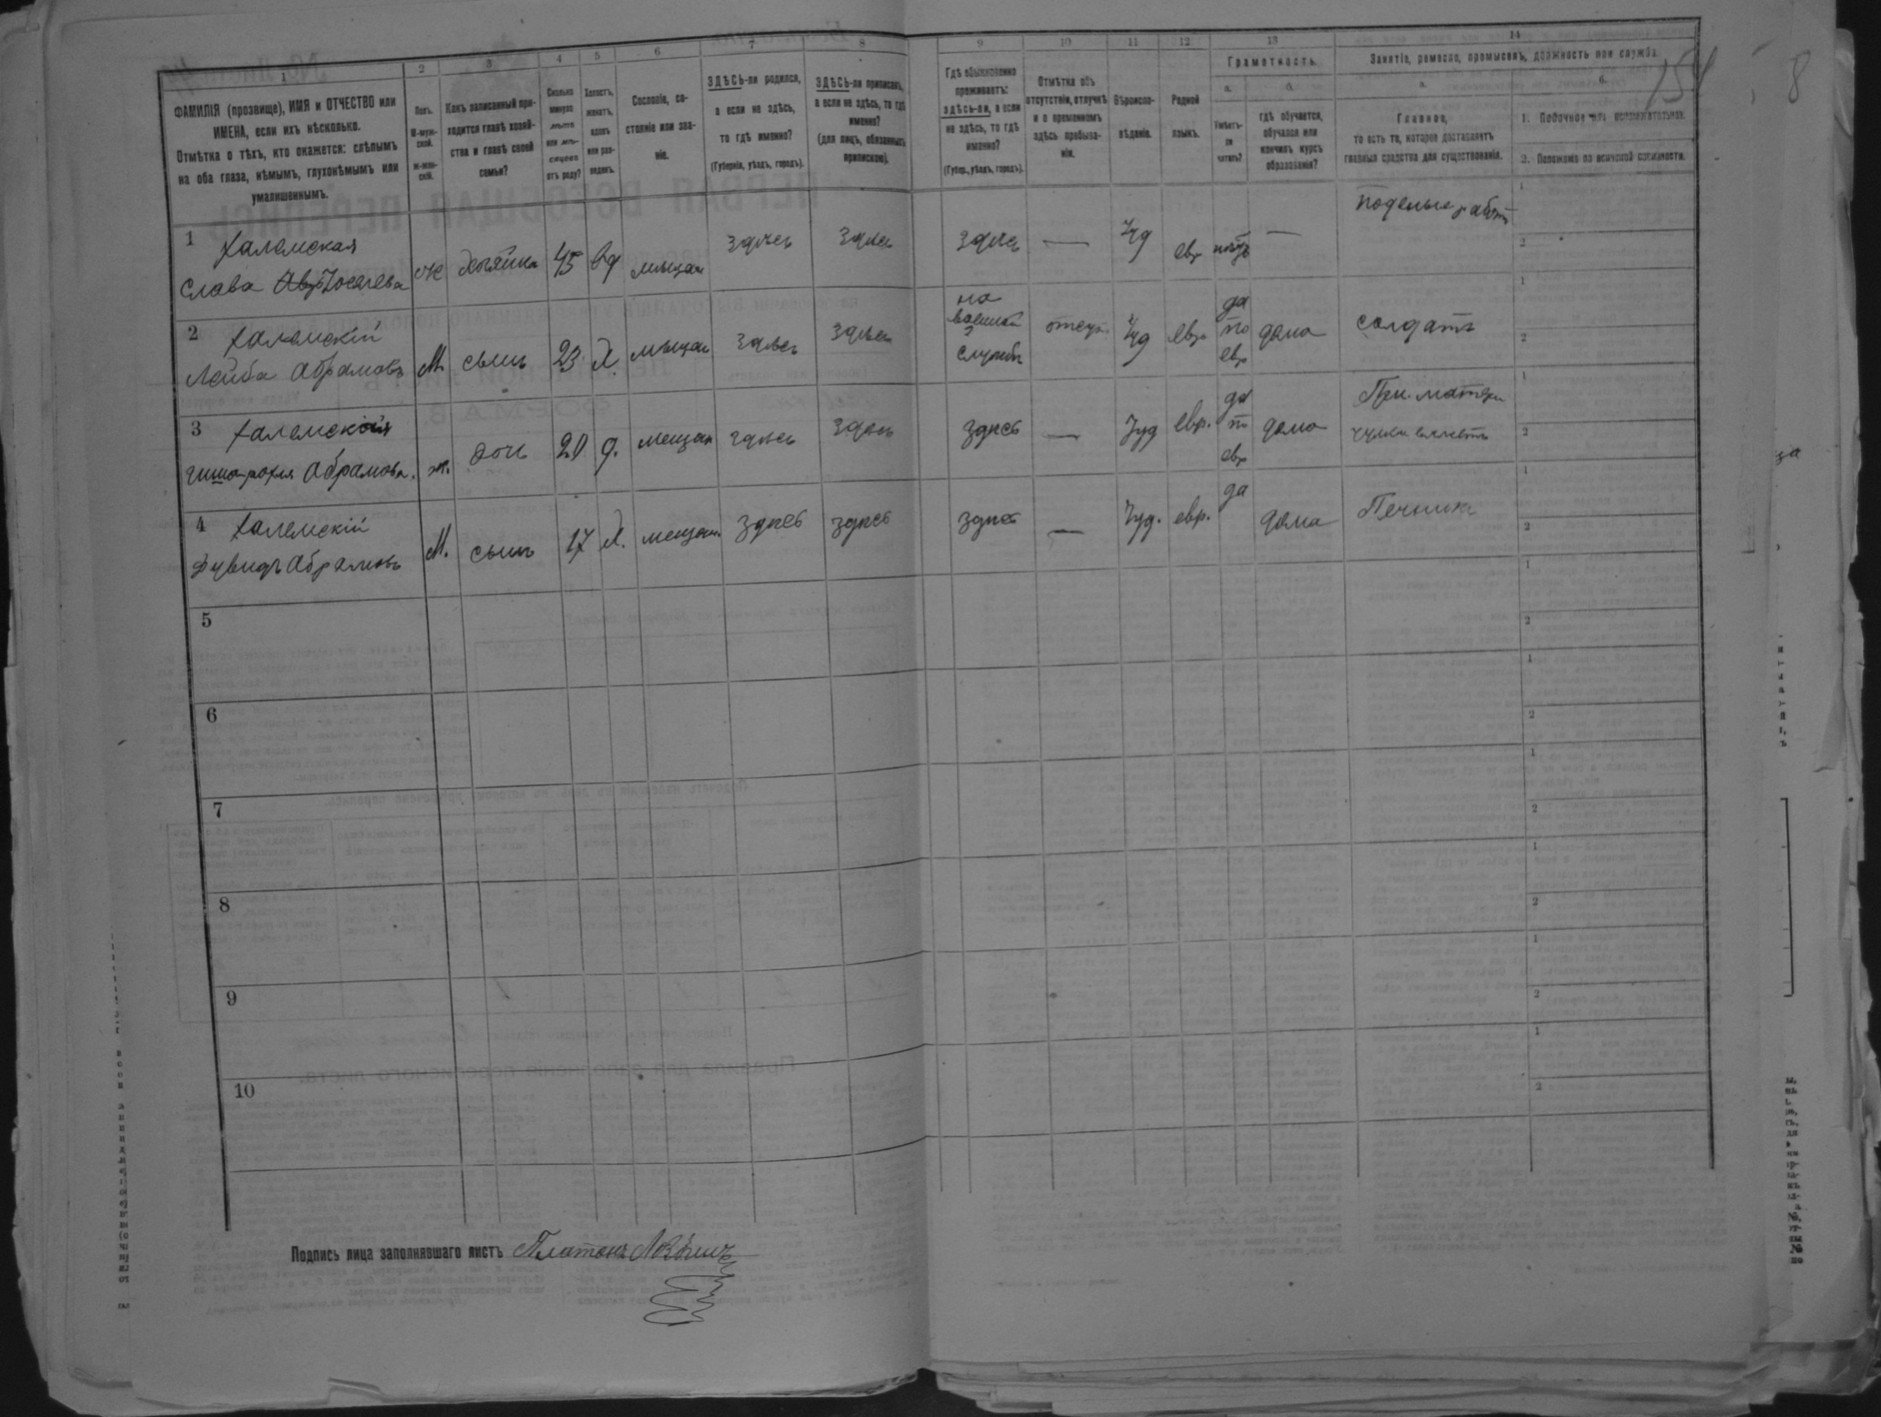 1 2 3 4 5 6 7 8 9 10 11 12 13 14
ФАМИЛІЯ (прозвище), ИМЯ и ОТЧЕСТВО или
ИМЕНА, если ихъ нѣсколько.
Отмѣтка о тѣхъ, кто окажется: слѣпымъ
на оба глаза, нѣмымъ, глухонѣмымъ или
умалишеннымъ.
Полъ.
М-муж-
ской.
Ж-жен-
скій.
Какъ записанный при-
ходится главѣ хозяй-
ства и главѣ своей
семьи?
Сколько
минуло
лѣтъ
или мѣ-
сяцевъ
отъ роду?
Холостъ,
женатъ,
вдовъ
или раз-
веденъ.
Сословіе, со-
стояніе или зва-
ніе.
ЗДѢСЬ-ли родился,
а если не здѣсь,
то гдѣ именно?
(Губернія, уѣздъ, городъ).
ЗДѢСЬ-ли приписанъ,
а если не здѣсь, то гдѣ
именно?
(для лицъ, обязанныхъ
припискою).
Гдѣ обыкновенно
проживаетъ:
здѣсь-ли, а если
не здѣсь, то гдѣ
именно?
(Губер., уѣздъ, городъ).
Отмѣтка объ
отсутствіи, отлучкѣ
и о временномъ
здѣсь пребыва-
ніи.
Вѣроиспо-
вѣданіе.
Родной
языкъ.
Грамотность.
а.
Умѣетъ-
ли
читать?
б.
гдѣ обучается,
обучался или
кончилъ курсъ
образованія?
Занятіе, ремесло, промыселъ, должность или служба.
а.
Главное,
то есть то, которое доставляетъ
главныя средства для существованія.
б.
1. Побочное или вспомогательное.
2. Положеніе по воинской повинности.
154
8
1 Халемская
Слава Іоселева
ж хозяйка 45 вд мѣщан здѣсь здѣсь здѣсь — Іуд евр —
2 Халемскій
Лейба Абрамовъ
М. сынъ 23 х. мѣщан здѣсь здѣсь
на
военной
службѣ
Іуд евр
да
по
евр
дома солдатъ
3 Халемская
Абрамова.
ж. дочь 20 д. мещан здѣсь здѣсь здѣсь — Іуд евр.
да
по
евр
дома
При матери
4 Халемскій
Абрамовъ
М. сынъ 17 х. мещан здѣсь здѣсь здѣсь — Іуд. евр. да дома Печникъ
5
6
7
8
9
10
Подпись лица заполнявшаго листъ Платонъ